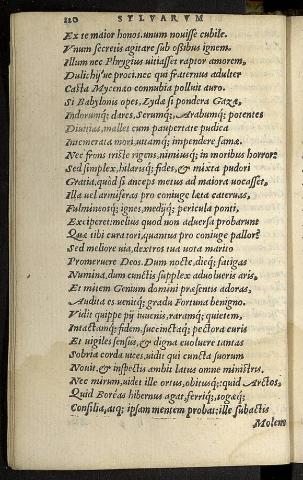 110 SYLVARVM
Ex te maior honos, unum nouisse cubile.
Vnum secretis agitare sub ossibus ignem.
Illum nec Phrygius uitiasset raptor amorem,
Dulichijue proci, nec qui fraternus adulter
Casta Mycenæo connubia polluit auro.
Si Babylonis opes, Lydæ si pondera Gazæ,
Indorumq; dares, Serumq;, Arabumq; potentes
Diuitias, mallet cum paupertate pudica
Intemerata mori, uitamq; impendere famæ.
Nec frons triste rigens, nimiusq; in moribus horror:
Sed simplex, hilarisq; fides, & mixta pudori
Gratia, quòd si anceps metus ad maiora uocasset,
Illa uel armiferas pro coniuge læta cateruas,
Fulmineosq; ignes, medijq; pericula ponti,
Exciperet: melius quod non aduersa probarunt
Quæ tibi cura tori, quantus pro coniuge pallor?
Sed meliore uia, dextros tua uota marito
Promeruere Deos. Dum nocte, dieq; fatigas
Numina, dum cunctis supplex aduolueris aris,
Et mitem Genium domini præsentis adoras,
Audita es, uenitq; gradu Fortuna benigno.
Vidit quippe pij iuuenis, raramq; quietem,
Intactamq; fidem, succinctaq; pectora curis
Et uigiles sensus, & digna euoluere tantas
Sobria corda uices, uidit qui cuncta suorum
Nouit, & inspectis ambit latus omne ministris.
Nec mirum, uidet ille ortus, obitusq; quid Arctos,
Quid Boreas hibernus agat, ferriq; togæq;
Consilia, atq; ipsam mentem probat: ille subactis
Molem